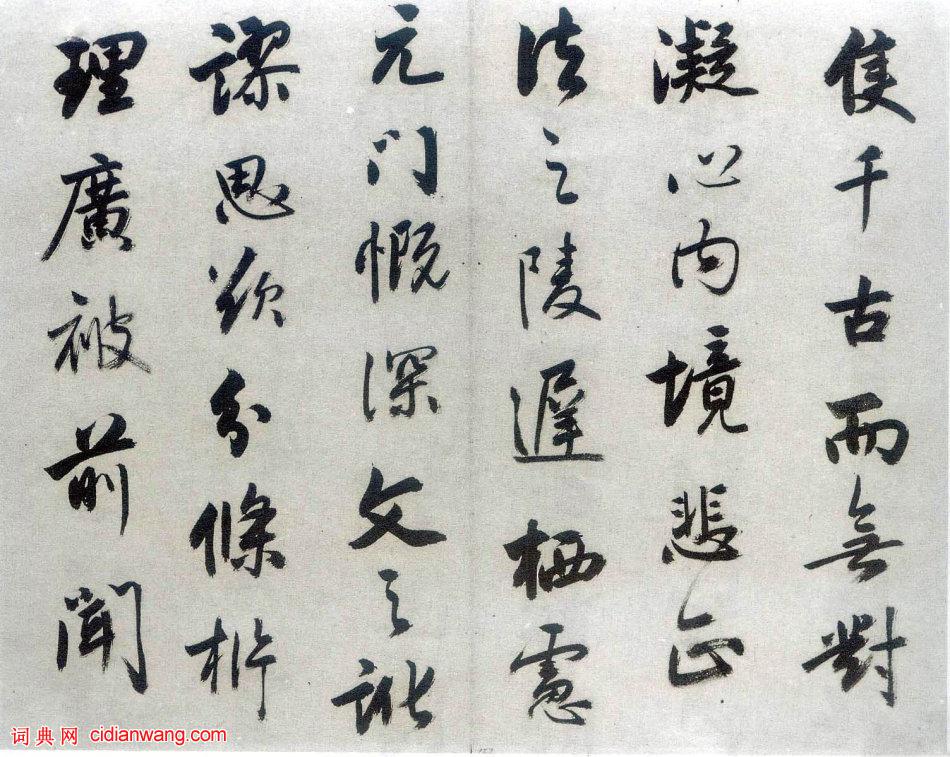 隻千古而無對
凝心内境悲正
法之陵遲栖慮
元門慨深文之訛
謬思欲分條析
理廣被前聞
词典网 cidianwang.com